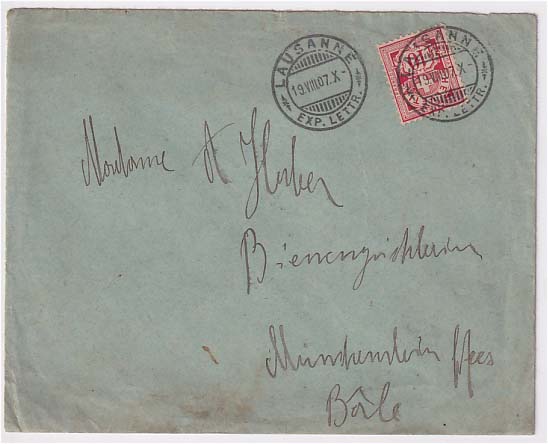 LAUSANNE
19.VIII.07.X-
EXP. LETTR.
LAUSANNE
19.VIII.07.X-
EXP. LETTR.
Madame A Huber
Münchenstein
Bâle